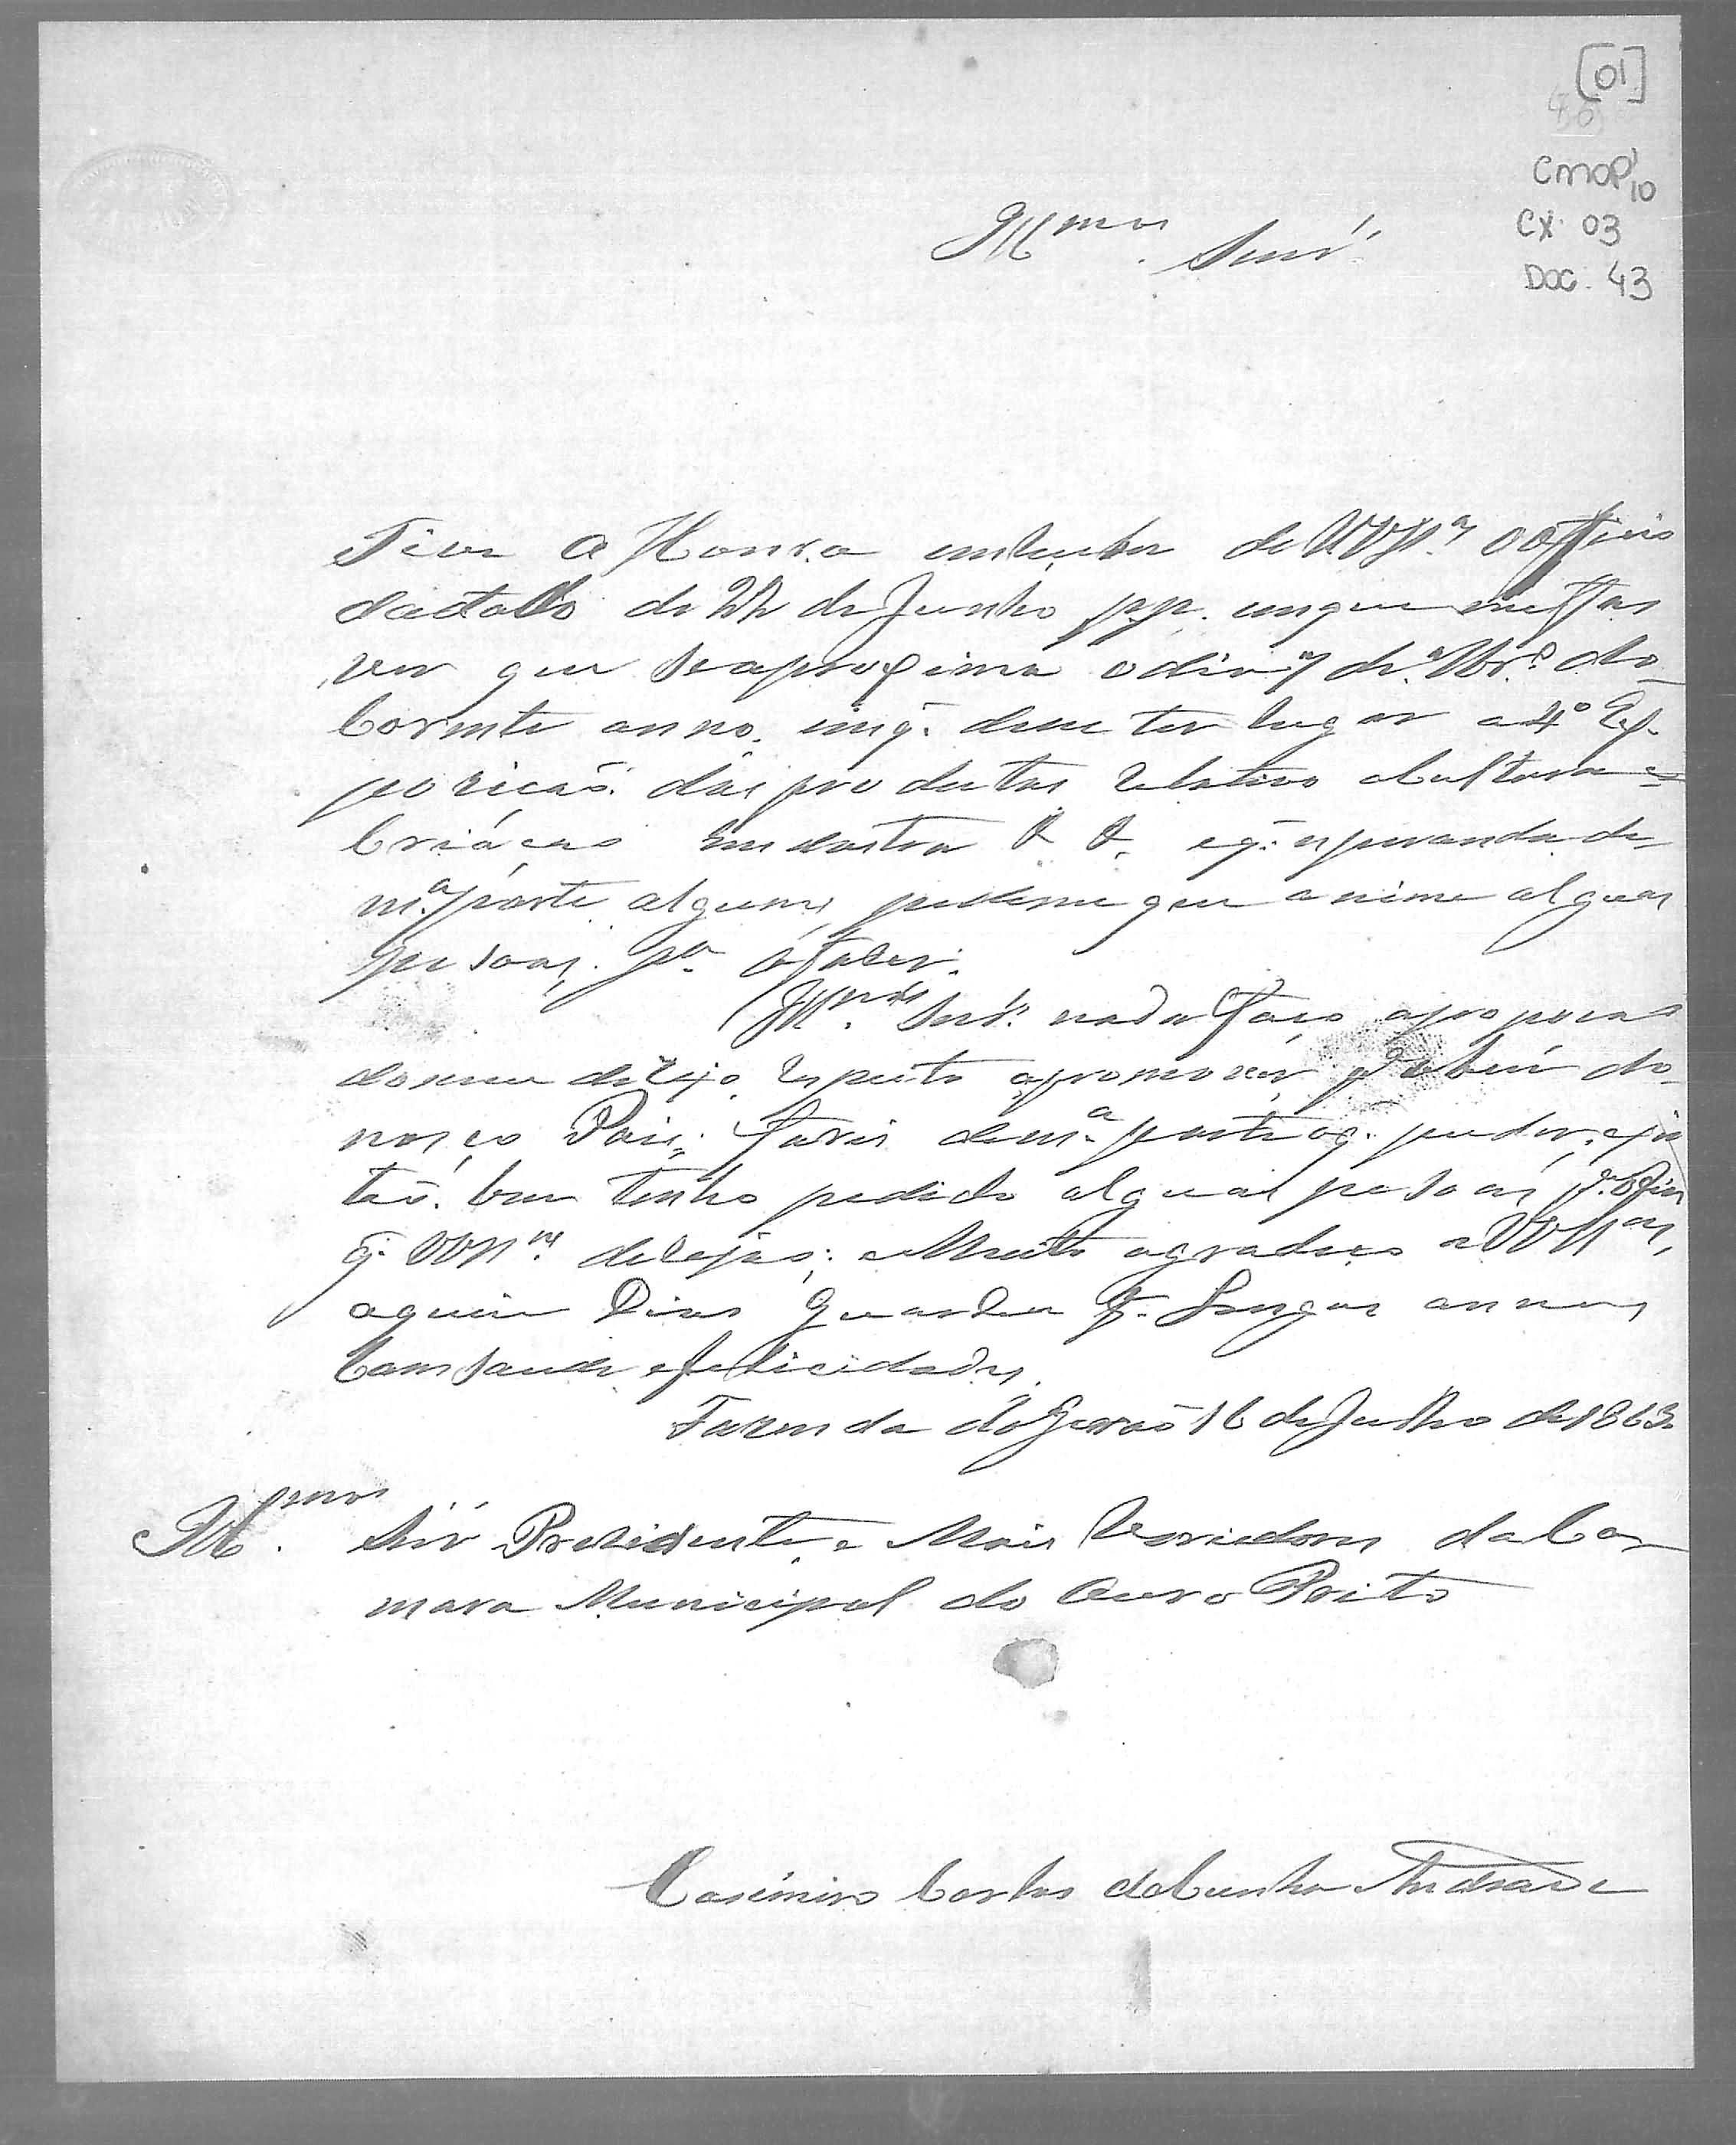 [01]
CMOP
10
CX. 03
DOC. 43
Illmos. Snrs.
Tive a Honra de VVSas. o officio
dactado de 22 de Junho pp. em que
ver que seaproxima o dia 7 de do
Corrente anno. emq. deve ter lugar a 4º Ex-
posicaõ dos produtos relativo aCultura e
Criáçao industria & & eq. esperando de
ma. parte algums pedeme que anime algũas
pesoas, pa. o fazer.
Illmos. Snrs. nada faço
domeu dezejo respeito apromover obem do
nosço Pais; farei dema. parte oq. puder,
taõ bem tenho pedido algũas pesoas, pa. o fim
q. VVSas. dezejaõ; e Muito agradeço a VVSas,
aquem Deos Guarde pr. Longos annos
Com saude efelicidades.
Fazenda do 16 de Julho de 1863
Illmos. Snr Prezidente, e Mais Veriadores da Ca-
mara Municipal do Ouro Preito
Casimiro Carlos daCunha Andrade